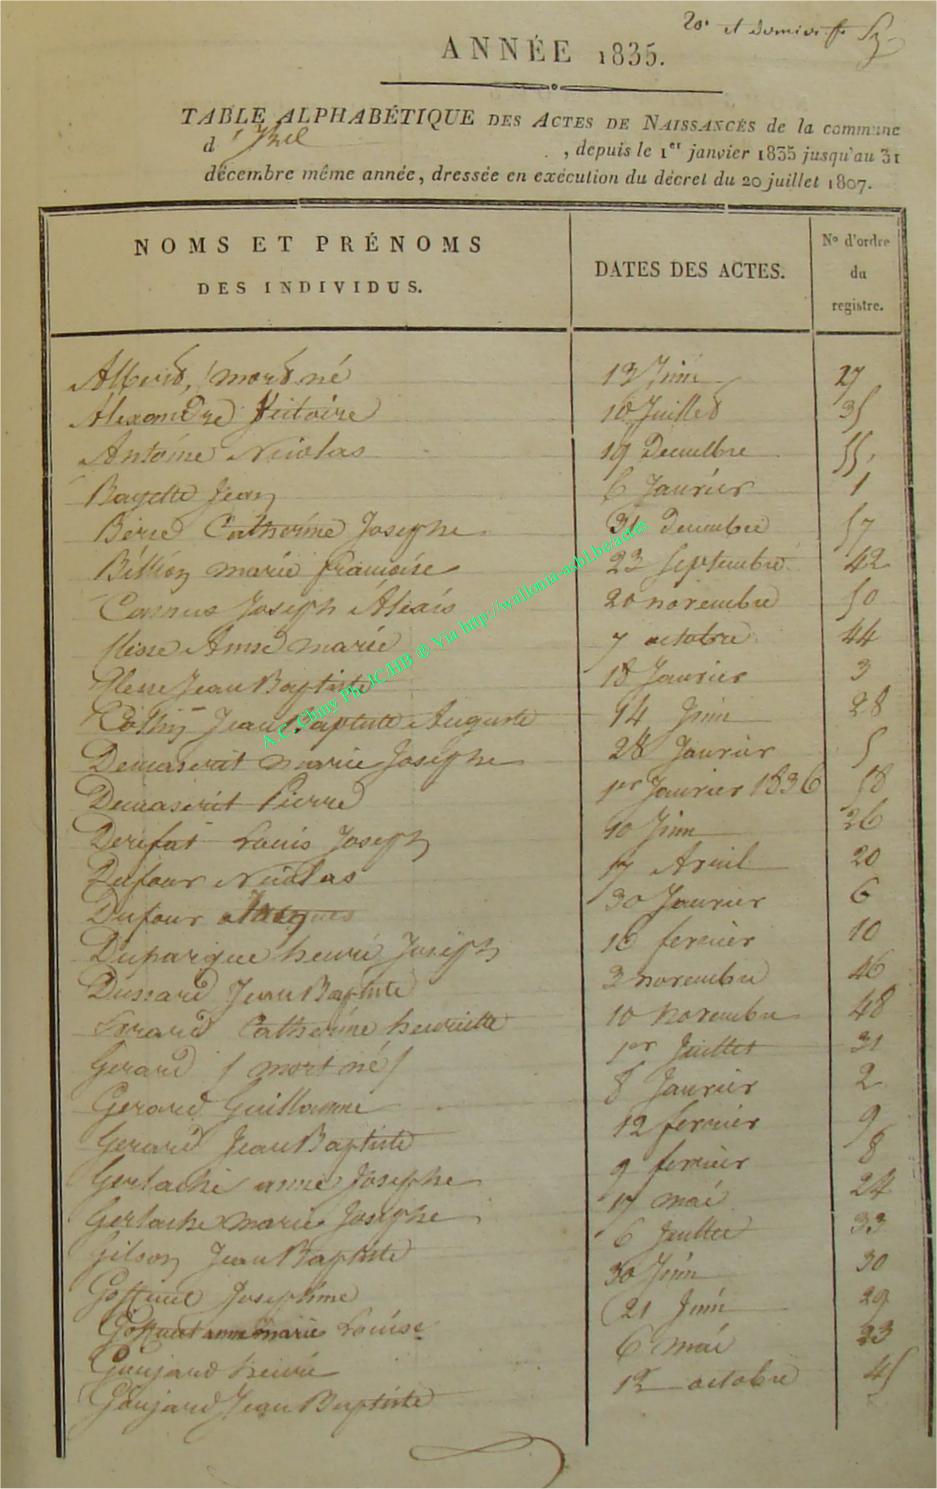 20e et dernier f.
ANNÉE 1835.
TABLE ALPHABÉTIQUE DES ACTES DE NAISSANCES de la commune
d' Izel , depuis le 1er janvier 1835 jusqu'au 31
décembre même année, dressée en exécution du décret du 20 juillet 1807.
NOMS ET PRÉNOMS DATES DES ACTES. No d'ordre
DES INDIVIDUS. du
registre.
mord né 12 Juin 27
Alexandre Victoire 16 Juilled 35
Antoine Nicolas 19 Decembre 55
Bayette Jean 6 Janvier 1
Catherine Josephe 31 Decembre 57
Billion marie françoise 23 Septembre 42
Camus Joseph Alexis 20 novembre 50
Clesse Anne marie 7 octobre 44
Clesse Jean Baptiste 18 Janvier 3
Jean Baptiste Auguste 14 Juin 28
marie Josephe 28 Janvier 5
Pierre 1er Janvier 1836 58
Louis Joseph 10 Juin 26
Dufour Nicolas 17 Avril 20
Dufour Jacques 30 Janvier 6
Duparque henri Joseph 16 fevrier 10
Dussard Jean Baptiste 3 novembre 46
Catherine henriette 10 Novembre 48
Gerard / mort né / 1er Juillet 31
Gerard Guillaume 8 Janvier 2
Gerard Jean Baptiste 12 fevrier 9
Gerlache anne Josephe 9 fevrier 8
Gerlache marie Josephe 17 mai 24
Gilson Jean Baptiste 6 Juillet 33
Goffinet Josephine 30 Juin 30
Goffinet anne marie Louise 21 Juin 29
Goujard henri 6 mai 23
Goujard Jean Baptiste 12 octobre 45
A.C. Chiny Ph.JC.HB ® Via http://wallonia-asbl.be/actes